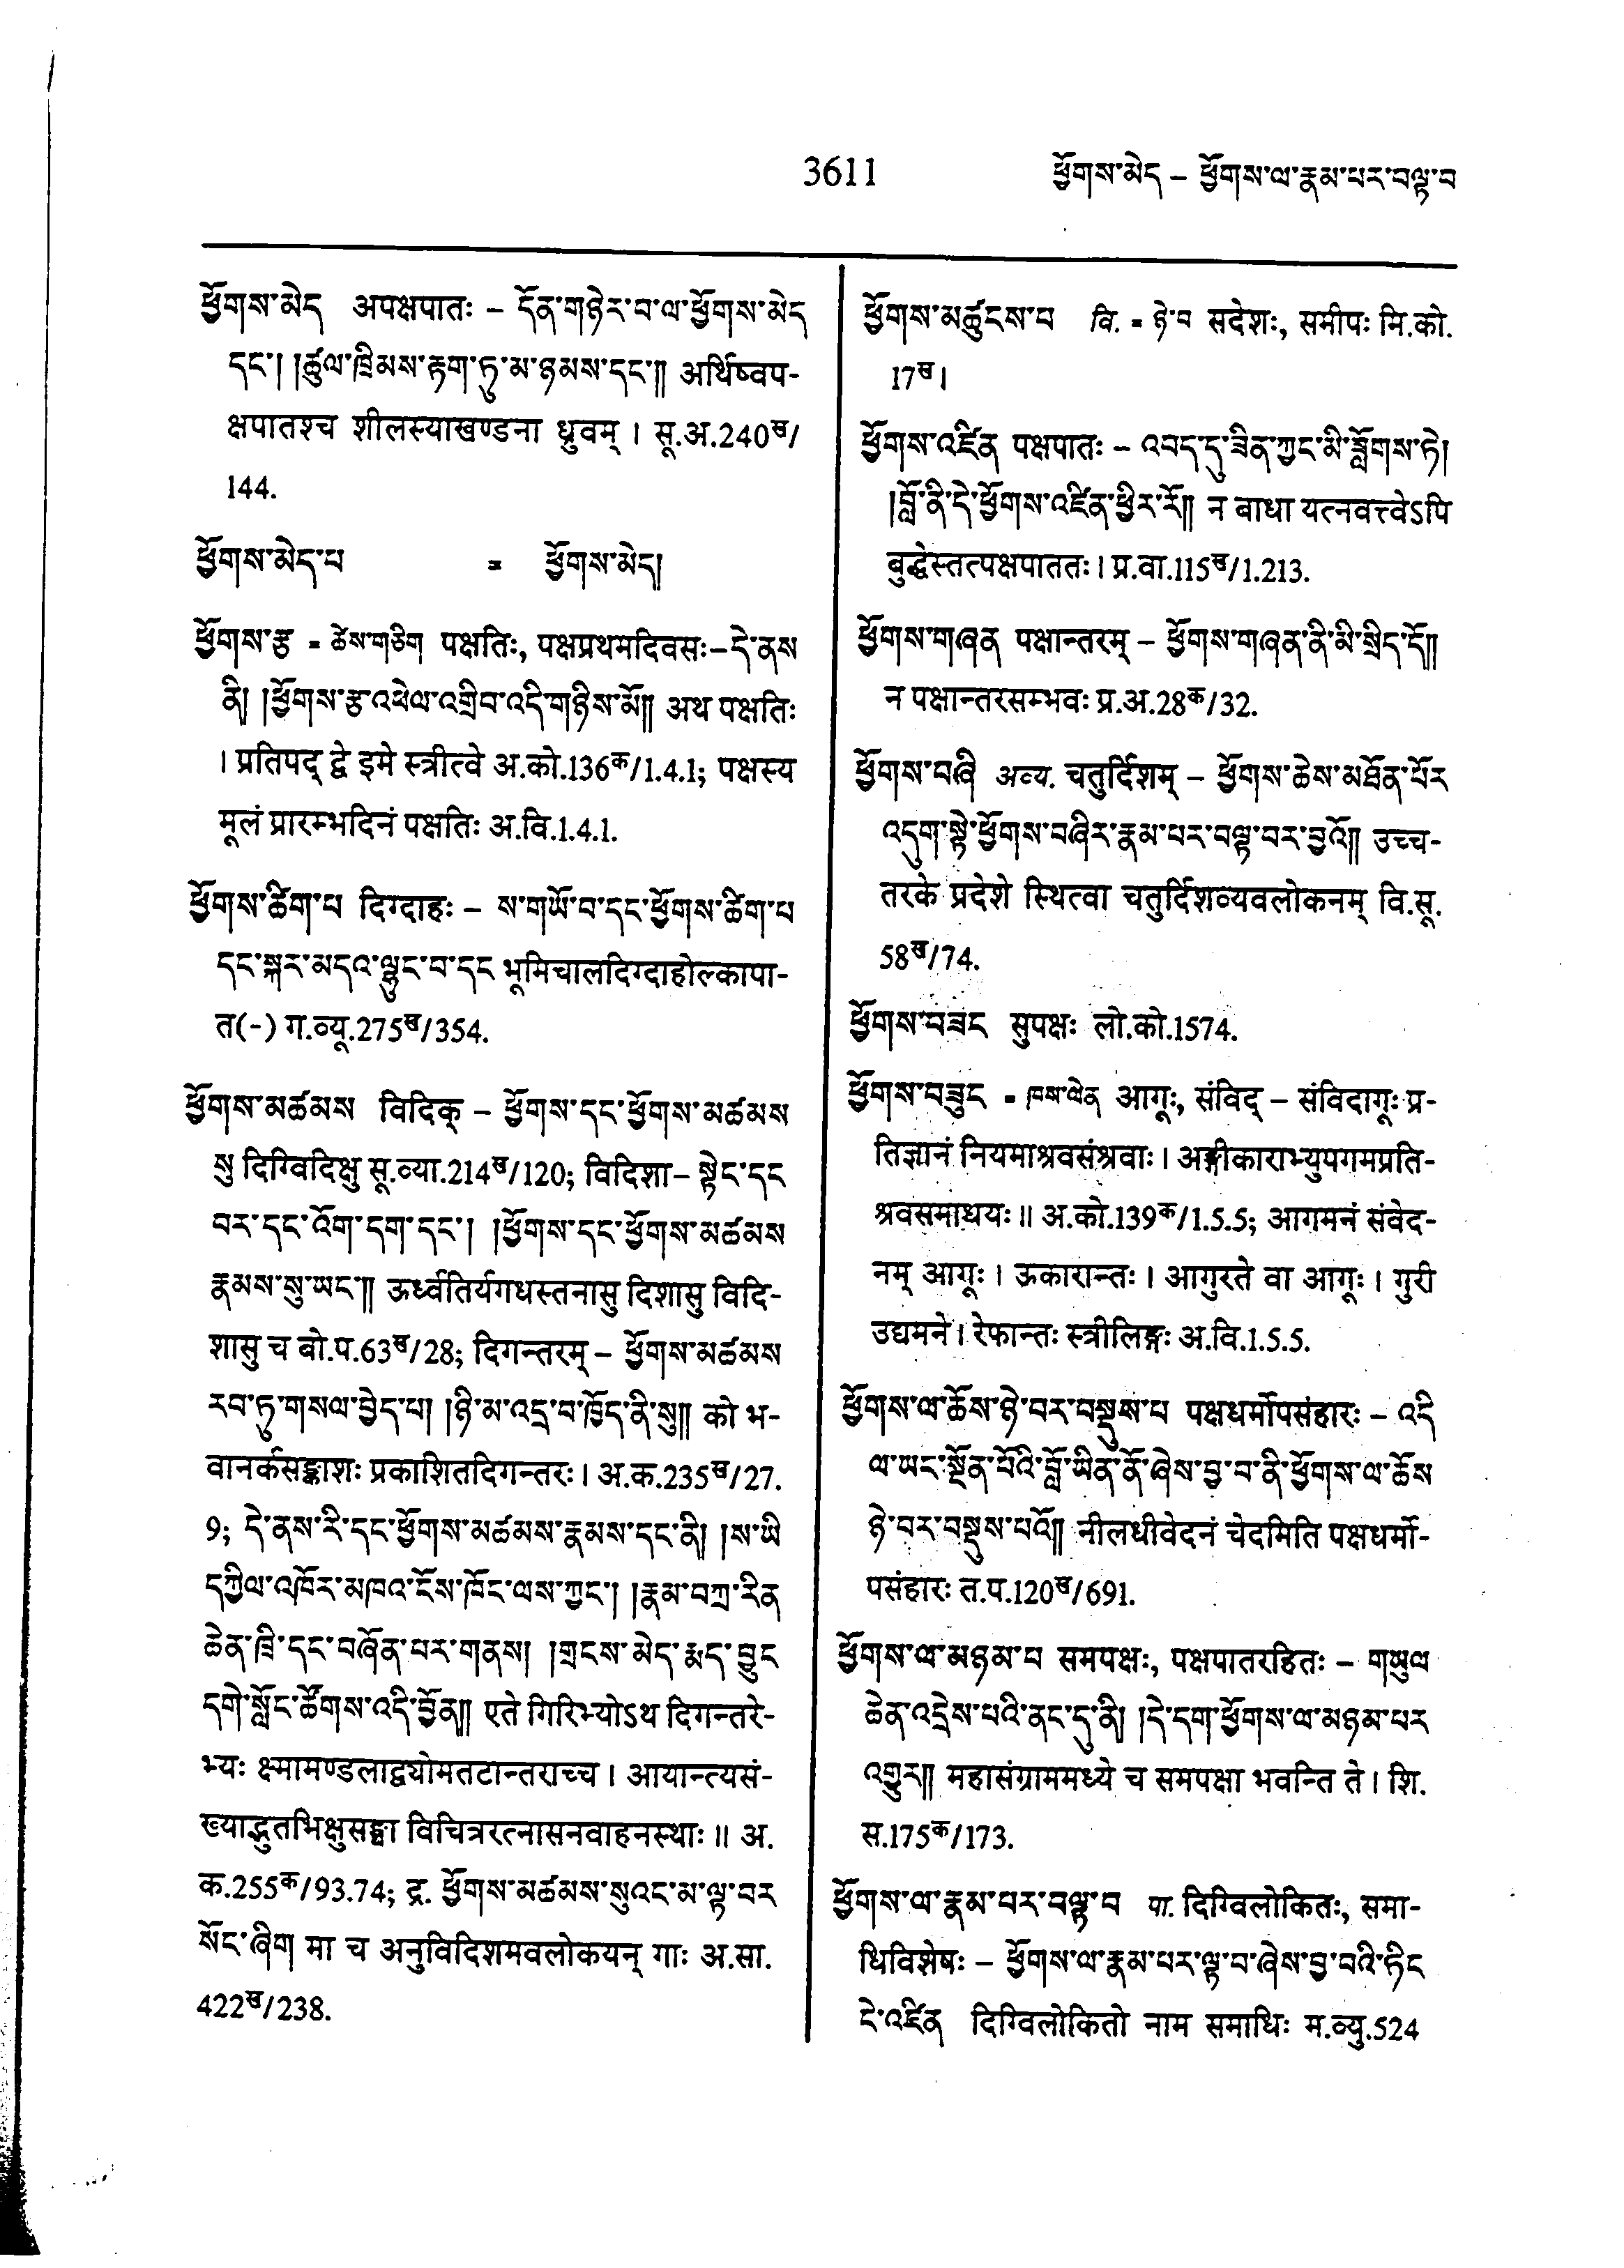 3611
ཕྱོགས་མེད – ཕྱོགས་ལ་རྣམ་པར་བལྟ་བ
ཕྱོགས་མེད अपक्षपातः – དོན་གཉེར་བ་ལ་ཕྱོགས་མེད
དང་། །ཚུལ་ཁྲིམས་རྟག་ཏུ་མ་ཉམས་དང་༎ अर्थिष्वप-
क्षपातश्च शीलस्याखण्डना ध्रुवम् । सू.अ.240ख/
144.
ཕྱོགས་མེད་པ = ཕྱོགས་མེད།
ཕྱོགས་རྩ = ཚེས་གཅིག पक्षतिः, पक्षप्रथमदिवसः–དེ་ནས
ནི། །ཕྱོགས་རྩ་འཕེལ་འགྲིབ་འདི་གཉིས་མོ༎ अथ पक्षतिः
। प्रतिपद् द्वे इमे स्त्रीत्वे अ.को.136क/1.4.1; पक्षस्य
मूलं प्रारम्भदिनं पक्षतिः अ.वि.1.4.1.
ཕྱོགས་ཚིག་པ दिग्दाहः – ས་གཡོ་བ་དང་ཕྱོགས་ཚིག་པ
དང་སྐར་མདའ་ལྟུང་བ་དང भूमिचालदिग्दाहोल्कापा-
त(-) ग.व्यू.275ख/354.
ཕྱོགས་མཚམས विदिक् – ཕྱོགས་དང་ཕྱོགས་མཚམས
སུ दिग्विदिक्षु सू.व्या.214ख/120; विदिशा – སྟེང་དང
བར་དང་འོག་དག་དང་། །ཕྱོགས་དང་ཕྱོགས་མཚམས
རྣམས་སུ་ཡང་༎ ऊर्ध्वतिर्यगधस्तनासु दिशासु विदि-
शासु च बो.प.63ख/28; दिगन्तरम् – ཕྱོགས་མཚམས
རབ་ཏུ་གསལ་བྱེད་པ། །ཉི་མ་འདྲ་བ་ཁྱོད་ནི་སུ༎ को भ-
वानर्कसङ्काशः प्रकाशितदिगन्तरः । अ.क.235ख/27.
9; དེ་ནས་རི་དང་ཕྱོགས་མཚམས་རྣམས་དང་ནི། །ས་ཡི
དཀྱིལ་འཁོར་མཁའ་ངོས་ཁོང་ལས་ཀྱང་། །རྣམ་བཀྲ་རིན
ཆེན་ཁྲི་དང་བཞོན་པར་གནས། །གྲངས་མེད་རྨད་བྱུང
དགེ་སློང་ཚོགས་འདི་བྱོན༎ एते गिरिभ्योऽथ दिगन्तरे-
भ्यः क्ष्मामण्डलाद्व्योमतटान्तराच्च । आयान्त्यसं-
ख्याद्भुतभिक्षुसङ्घा विचित्ररत्नासनवाहनस्थाः ॥ अ.
क.255क/93.74; द्र. ཕྱོགས་མཚམས་སུའང་མ་ལྟ་བར
སོང་ཞིག मा च अनुविदिशमवलोकयन् गाः अ.सा.
422ख/238.
ཕྱོགས་མཚུངས་པ वि. = ཉེ་བ सदेशः, समीपः मि.को.
17ख ।
ཕྱོགས་འཛིན पक्षपातः – འབད་དུ་ཟིན་ཀྱང་མི་ཟློགས་ཏེ།
།བློ་ནི་དེ་ཕྱོགས་འཛིན་ཕྱིར་རོ༎ न बाधा यत्नवत्त्वेऽपि
बुद्धेस्तत्पक्षपाततः । प्र.वा.115ख/1.213.
ཕྱོགས་གཞན पक्षान्तरम् – ཕྱོགས་གཞན་ནི་མི་སྲིད་དོ༎
न पक्षान्तरसम्भवः प्र.अ.28क/32.
ཕྱོགས་བཞི अव्य. चतुर्दिशम् – ཕྱོགས་ཆེས་མཐོན་པོར
འདུག་སྟེ་ཕྱོགས་བཞིར་རྣམ་པར་བལྟ་བར་བྱའོ༎ उच्च-
तरके प्रदेशे स्थित्वा चतुर्दिशव्यवलोकनम् वि.सू.
58ख/74.
ཕྱོགས་བཟང सुपक्षः लो.को.1574.
ཕྱོགས་བཟུང = ཁས་ལེན आगूः, संविद् – संविदागूः प्र-
तिज्ञानं नियमाश्रवसंश्रवाः । अङ्गीकाराभ्युपगमप्रति-
श्रवसमाधयः ॥ अ.को.139क/1.5.5; आगमनं संवेद-
नम् आगूः । ऊकारान्तः । आगुरते वा आगूः । गुरी
उद्यमने । रेफान्तः स्त्रीलिङ्गः अ.वि.1.5.5.
ཕྱོགས་ལ་ཆོས་ཉེ་བར་བསྡུས་པ पक्षधर्मोपसंहारः – འདི
ལ་ཡང་སྔོན་པོའི་བློ་ཡིན་ནོ་ཞེས་བྱ་བ་ནི་ཕྱོགས་ལ་ཆོས
ཉེ་བར་བསྡུས་པའོ༎ नीलधीवेदनं चेदमिति पक्षधर्मो-
पसंहारः त.प.120ख/691.
ཕྱོགས་ལ་མཉམ་པ समपक्षः, पक्षपातरहितः – གཡུལ
ཆེན་འདྲེས་པའི་ནང་དུ་ནི། །དེ་དག་ཕྱོགས་ལ་མཉམ་པར
འགྱུར༎ महासंग्राममध्ये च समपक्षा भवन्ति ते । शि.
स.175क/173.
ཕྱོགས་ལ་རྣམ་པར་བལྟ་བ पा. दिग्विलोकितः, समा-
धिविशेषः – ཕྱོགས་ལ་རྣམ་པར་ལྟ་བ་ཞེས་བྱ་བའི་ཏིང
ངེ་འཛིན दिग्विलोकितो नाम समाधिः म.व्यु.524